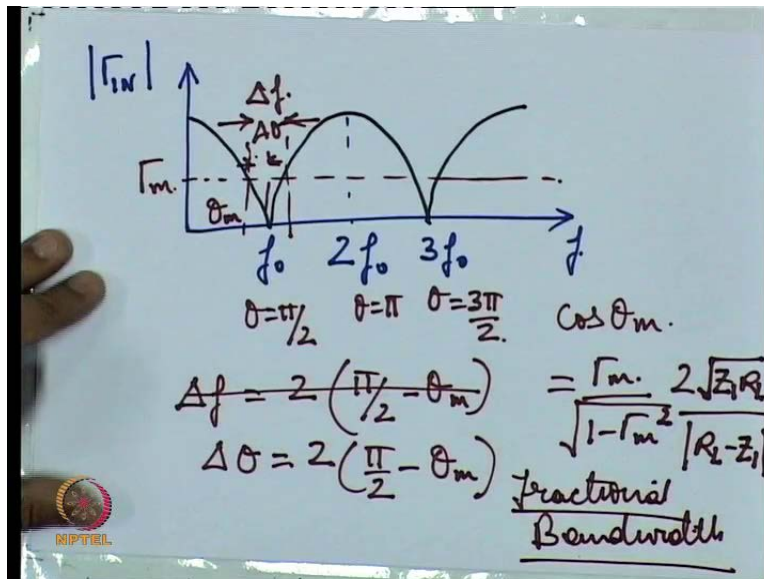 |Γ_IN|
Δf.
Δθ
Γm.
θm
f₀ 2f₀ 3f₀ f
θ=π/2 θ=π θ=3π/2.
cos θm.
Δf = 2(π/2 - θm)
= Γm. / √(1-Γm²) 2√(Z₁R_L) / |R_L-Z₁|
Δθ = 2(π/2 - θm)
fractional
Bandwidth
NPTEL